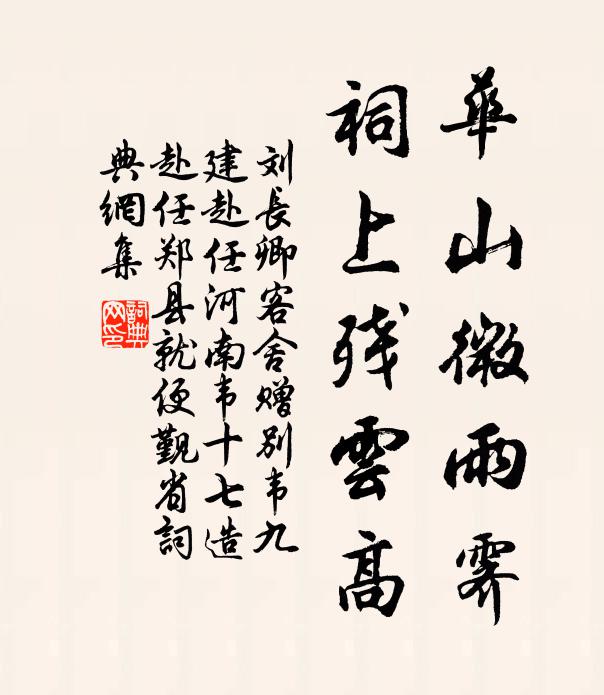 華山微雨霁
祠上残雲高
刘長卿客舍赠别韦九
建赴任河南韦十七造
赴任郑县就便觐省詞
典網集
詞典
网印